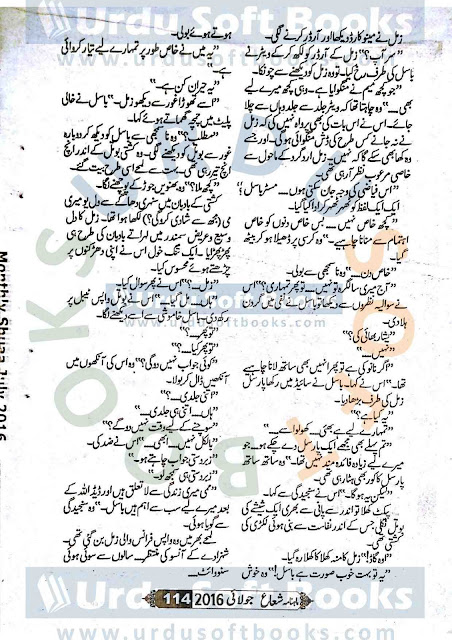 Urdu Soft Books
www.urdusoftbooks.com
زمل نے مینیو کارڈ دیکھا اور آرڈر کرنے لگی۔
"سر آپ؟" زمل کے آرڈر کو لکھ کر کے ویٹر نے
باسل کی طرف رخ کیا۔ تو وہ زمل کو دیکھنے سے چونکا۔
"جو کچھ میم نے منگوایا ہے۔ وہی کچھ میرے لیے
بھی۔" وہ چاہتا تھا کہ ویٹر جلد سے جلد وہاں سے چلا
جائے۔ اس نے اس بات کی بھی پرواہ نہیں کی کہ زمل
نے نہ جانے کس طرح کی ڈش منگوائی ہوگی۔ اور جسے
وہ کھا بھی سکے گا کہ نہیں۔ یہ زمل اردگرد کے ماحول سے
خاصی مرعوب نظر آ رہی تھی۔
"اس فیاضی کی وجہ جان سکتی ہوں.... مسٹر باسل؟"
ایک ایک لفظ کو ٹھہر ٹھہر کر ادا کیا گیا۔
"کچھ خاص نہیں.... بس خاص دنوں کو خاص
اہتمام سے منانا چاہیے۔" وہ کرسی پر ڈھیلا ہو کر بیٹھ
گیا۔
"خاص دن...." وہ نا سمجھی سے بولی۔
"آج میری سالگرہ تو نہیں۔ تو پھر تمہاری؟" اس
نے سوالیہ نظروں سے دیکھا تو باسل نے نفی میں گردن
ہلا دی۔
"یشار بھائی کی؟"
"نہیں...."
"اگر نانو کی ہے تو پھر انہیں بھی ساتھ لانا چاہیے
تھا۔" اس نے کہا۔ باسل نے سائیڈ میں رکھا پارسل
زمل کی طرف بڑھا دیا۔
"یہ کیا ہے؟"
"تمہارے لیے ہے بھئی.... کھولو اسے...."
"تم پہلے بھی مجھے ایک پارسل دے چکے ہو۔ جو
میرے لیے زیادہ فائدہ مند نہیں تھا۔" وہ ساتھ ساتھ
پارسل کا کور بھی ہٹا رہی تھی۔
"لیکن یہ ہوگا۔" اس نے سنجیدگی سے کہا۔
پیک کھلا تو اندر سے پانی سے بھری ایک شیشے کی
بوتل نکلی جس کے اندر نفاست سے بنی ہوئی لکڑی کی
کشتی تھی۔
"اوہ گاڈ!" زمل کا منہ کھلا کا کھلا رہ گیا۔
"یہ تو بہت خوب صورت ہے باسل!" وہ خوش
ہوتے ہوئے بولی۔
"یہ میں نے خاص طور پر تمہارے لیے تیار کروائی
ہے۔"
"یہ حیران کن ہے۔"
"اسے تھوڑا غور سے دیکھو زمل۔" باسل نے خالی
پلیٹ میں چمچ گھماتے ہوئے کہا۔
"مطلب؟" وہ نا سمجھی سے باسل کو دیکھ کر دوبارہ
غور سے بوتل کو دیکھنے لگی۔ وہ کشتی بوتل کے اندر آنچ
آنچ تیر رہی تھی۔ بہت سے لمحے اسی طرح بیت گئے۔
"کچھ ملا؟" وہ بھنویں جوڑ کے پوچھنے لگا۔
کشتی کے بادبان میں سنہری دھاگے سے ول یو میری
می (مجھ سے شادی کرو گی؟) لکھا ہوا تھا۔ زمل کا دل
وسیع و عریض سمندر میں لہراتے بادبان کی طرح ہی
پھڑپھڑایا۔ ایک تک خول اس نے اپنی دھڑکنوں پر
چڑھتے ہوئے محسوس کیا۔
"زمل....؟" اس نے پھر سوال کیا۔
بوتل واپس ٹیبل پر
رکھ دی۔ باسل خاموشی سے اسے دیکھنے لگا۔
"تو پھر...."
"تو پھر کیا....؟"
"کوئی جواب نہیں دو گی؟" وہ اس کی آنکھوں میں
آنکھیں ڈال کر بولا۔
"اتنی جلدی....؟"
"ہاں.... اتنی ہی جلدی...."
"سوچنے کے لیے وقت نہیں دو گے؟"
"بالکل نہیں.... ابھی...." اس نے ضد کی۔
"زبردستی جواب چاہتے ہو۔"
"زبردستی ہی سمجھ لو۔"
"ممی میری زندگی سے لا تعلق ہیں اور ڈیڈ اللہ کے
بعد میرے لیے سب سے اہم ہیں باسل۔" وہ سنجیدگی
سے گویا ہوئی۔
لمحے بھر میں وہ واپس فرانس والی زمل بن گئی تھی۔
شہزادے کے آنسو کی منتظر۔ سالوں سے سوئی ہوئی
سنووائٹ۔
ماہنامہ شعاع جولائی 2016 114
Monthly Shuaa July 2016
Urdu Soft Books
www.urdusoftbooks.com